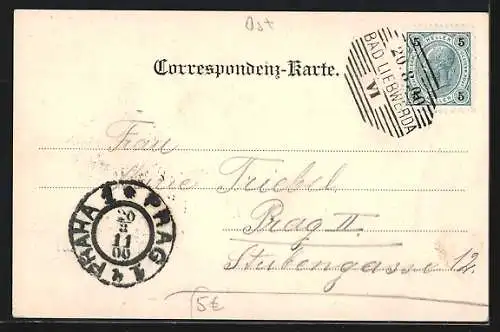 Ost
Correspondenz-Karte.
5 HELLER 5
5 5
BAD LIEBWERDA
20.8.00
VI
Frau
Marie Triebel
Prag II.
Stubengasse 12.
PRAHA 1 * PRAG 1
20
8
11
00
5€